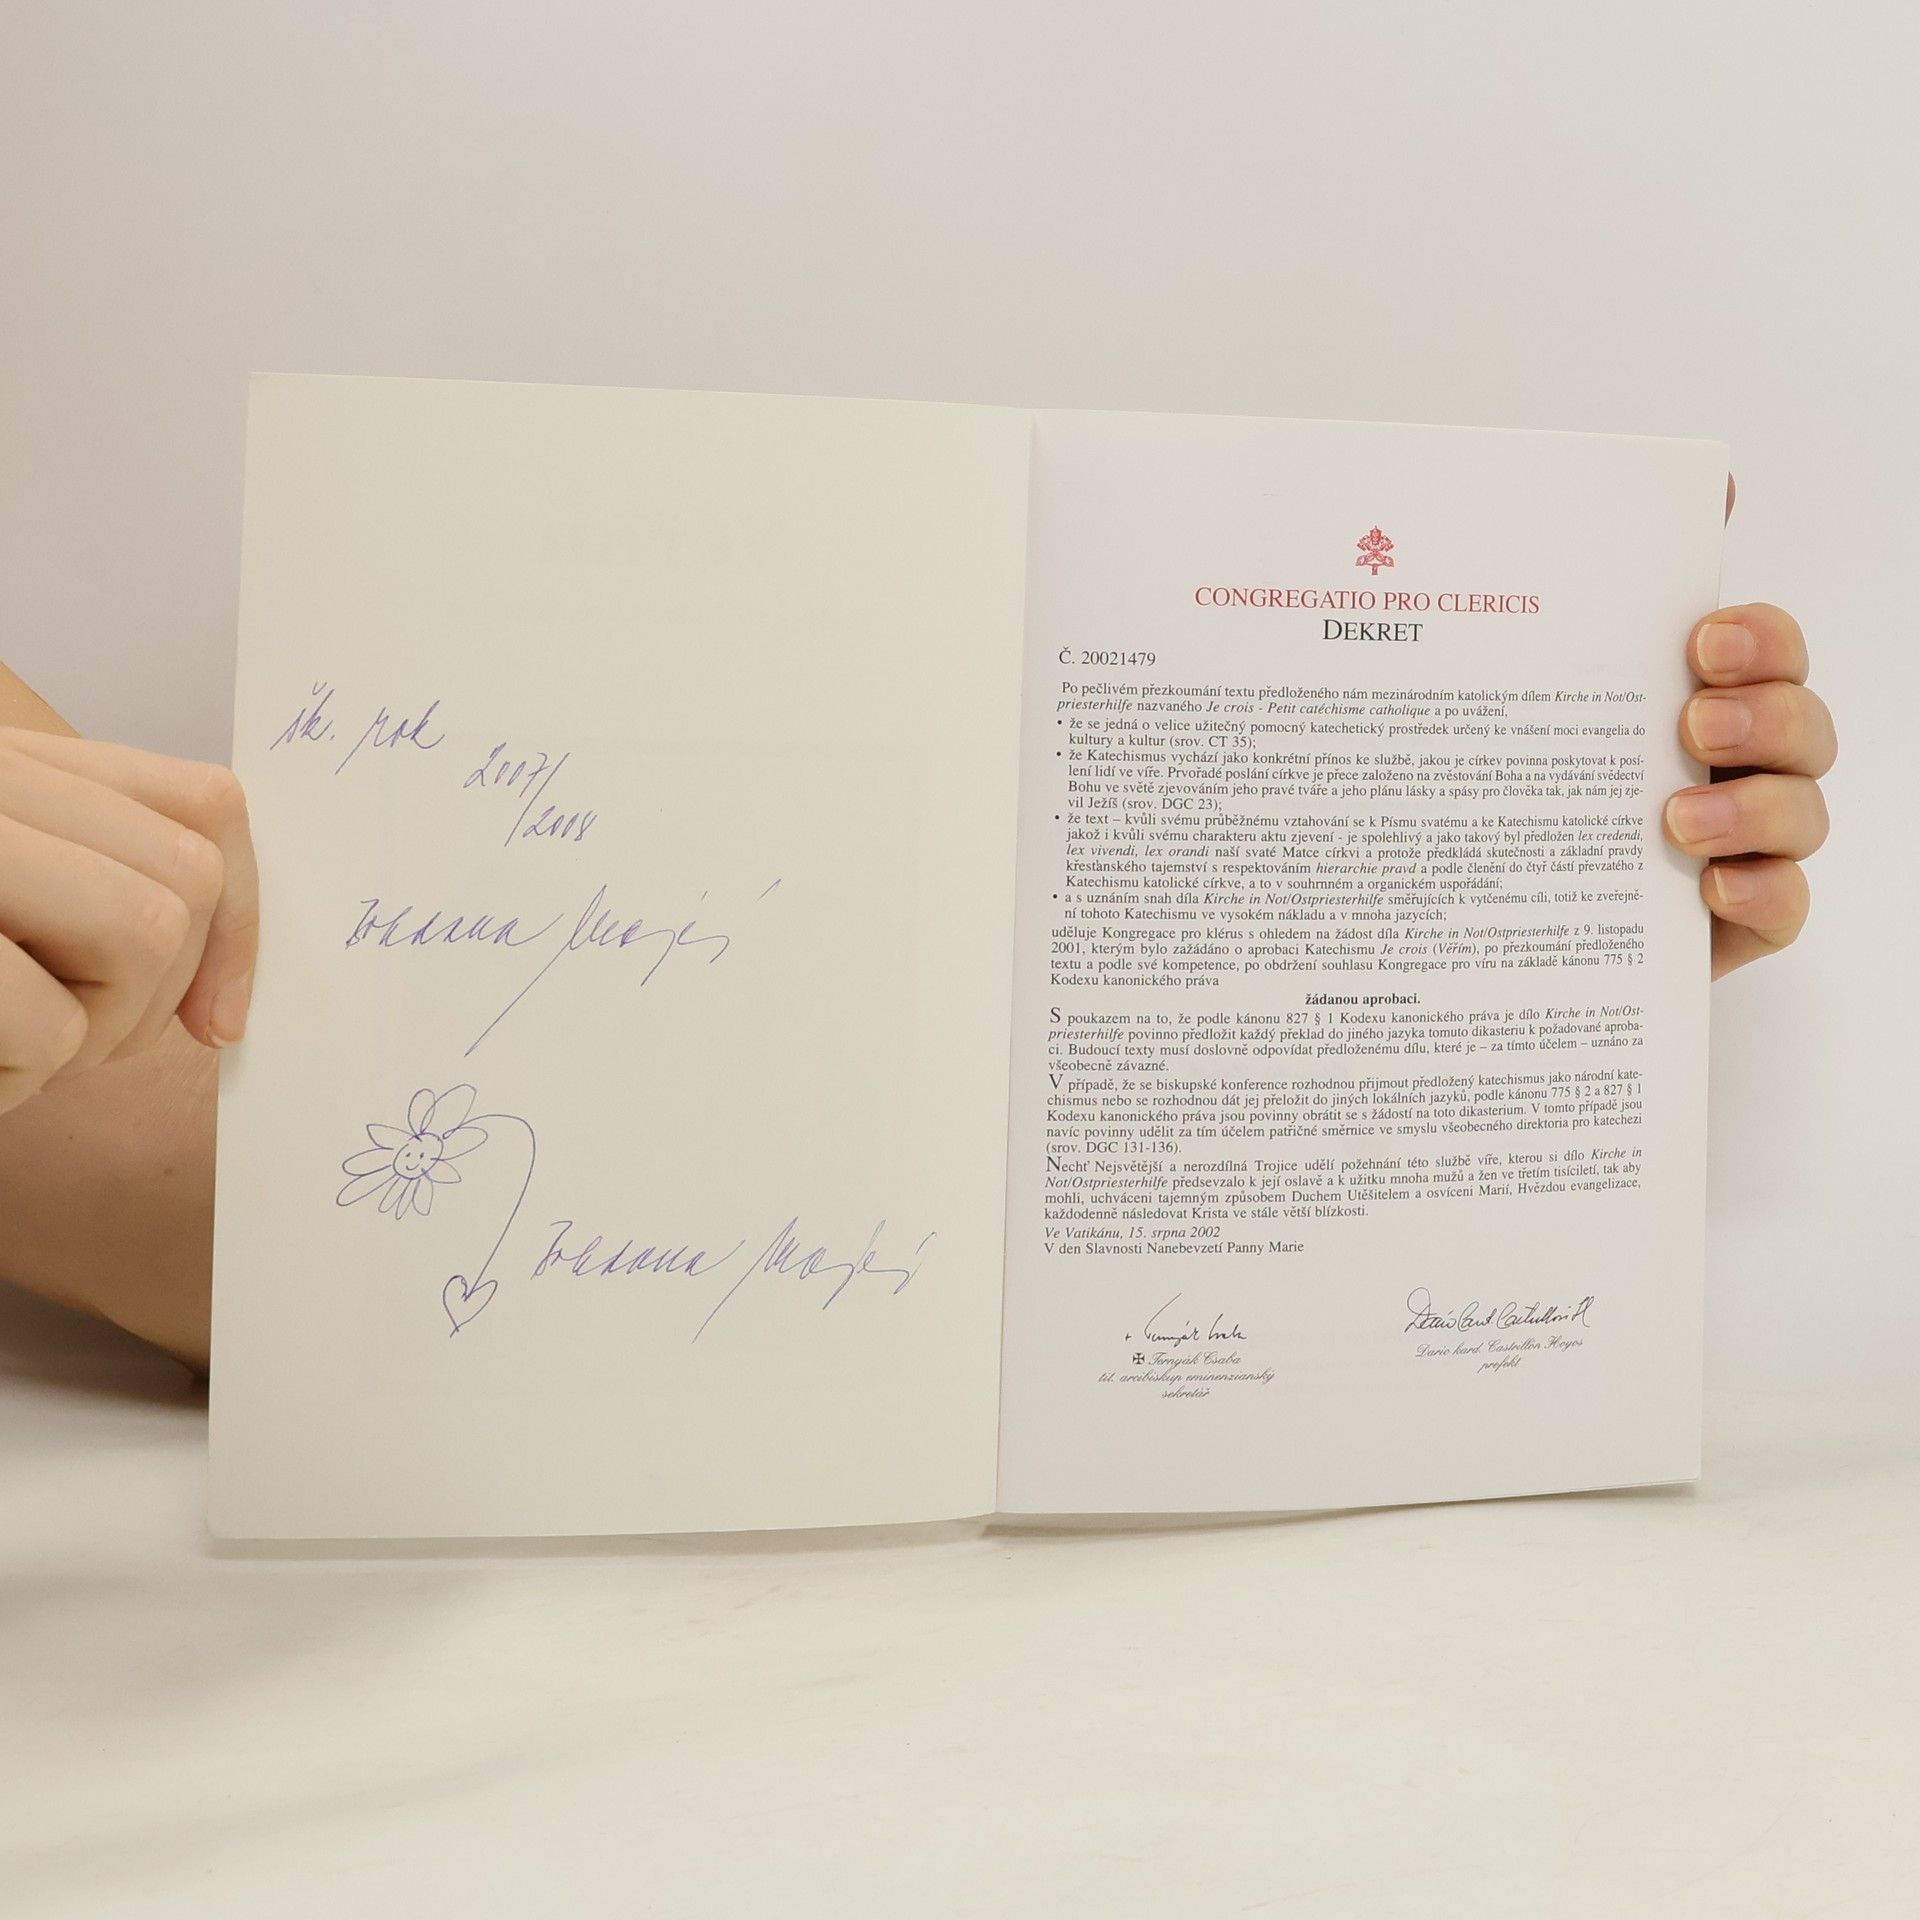 šk. rok
2007/
/2008
CONGREGATIO PRO CLERICIS
DEKRET
Č. 20021479
Po pečlivém přezkoumání textu předloženého nám mezinárodním katolickým dílem Kirche in Not/Ost-
priesterhilfe nazvaného Je crois - Petit catéchisme catholique a po uvážení,
• že se jedná o velice užitečný pomocný katechetický prostředek určený ke vnášení moci evangelia do
kultury a kultur (srov. CT 35);
• že Katechismus vychází jako konkrétní přínos ke službě, jakou je církev povinna poskytovat k posí-
lení lidí ve víře. Prvořadé poslání církve je přece založeno na zvěstování Boha a na vydávání svědectví
Bohu ve světě zjevováním jeho pravé tváře a jeho plánu lásky a spásy pro člověka tak, jak nám jej zje-
vil Ježíš (srov. DGC 23);
• že text – kvůli svému průběžnému vztahování se k Písmu svatému a ke Katechismu katolické církve
jakož i kvůli svému charakteru aktu zjevení - je spolehlivý a jako takový byl předložen lex credendi,
lex vivendi, lex orandi naší svaté Matce církvi a protože předkládá skutečnosti a základní pravdy
křesťanského tajemství s respektováním hierarchie pravd a podle členění do čtyř částí převzatého z
Katechismu katolické církve, a to v souhrnném a organickém uspořádání;
• a s uznáním snah díla Kirche in Not/Ostpriesterhilfe směřujících k vytčenému cíli, totiž ke zveřejně-
ní tohoto Katechismu ve vysokém nákladu a v mnoha jazycích;
uděluje Kongregace pro klérus s ohledem na žádost díla Kirche in Not/Ostpriesterhilfe z 9. listopadu
2001, kterým bylo zažádáno o aprobaci Katechismu Je crois (Věřím), po přezkoumání předloženého
textu a podle své kompetence, po obdržení souhlasu Kongregace pro víru na základě kánonu 775 § 2
Kodexu kanonického práva
žádanou aprobaci.
S poukazem na to, že podle kánonu 827 § 1 Kodexu kanonického práva je dílo Kirche in Not/Ost-
priesterhilfe povinno předložit každý překlad do jiného jazyka tomuto dikasteriu k požadované aproba-
ci. Budoucí texty musí doslovně odpovídat předloženému dílu, které je – za tímto účelem – uznáno za
všeobecně závazné.
V případě, že se biskupské konference rozhodnou přijmout předložený katechismus jako národní kate-
chismus nebo se rozhodnou dát jej přeložit do jiných lokálních jazyků, podle kánonu 775 § 2 a 827 § 1
Kodexu kanonického práva jsou povinny obrátit se s žádostí na toto dikasterium. V tomto případě jsou
navíc povinny udělit za tím účelem patřičné směrnice ve smyslu všeobecného direktoria pro katechezi
(srov. DGC 131-136).
Nechť Nejsvětější a nerozdílná Trojice udělí požehnání této službě víře, kterou si dílo Kirche in
Not/Ostpriesterhilfe předsevzalo k její oslavě a k užitku mnoha mužů a žen ve třetím tisíciletí, tak aby
mohli, uchváceni tajemným způsobem Duchem Utěšitelem a osvíceni Marií, Hvězdou evangelizace,
každodenně následovat Krista ve stále větší blízkosti.
Ve Vatikánu, 15. srpna 2002
V den Slavnosti Nanebevzetí Panny Marie
✠ Ternyák Csaba
tit. arcibiskup eminenzianský
sekretář
Dario kard. Castrillón Hoyos
prefekt